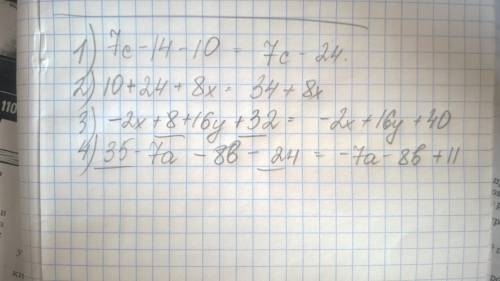 1) 7c - 14 - 10 = 7c - 24.
2) 10 + 24 + 8x = 34 + 8x
3) -2x + 8 + 16y + 32 = -2x + 16y + 40
4) 35 - 7a - 8b - 24 = -7a - 8b + 11
110